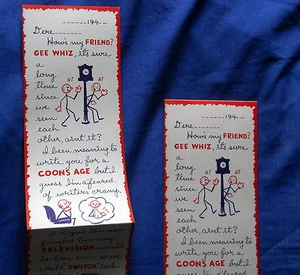 194
Dere
How's my FRIEND?
GEE WHIZ, it's sure
a
long
time
since
we
seen
each
other, aint it?
I been meaning to
write you for a
COONS AGE but I
guess I'm afeared
of writers cramp.
TELEVISION
"SWITCH"
HI
HI
194
Dere
How's my FRIEND?
GEE WHIZ, it's sure
a
long
time
since
we
seen
each
other, aint it?
I been meaning to
write you for a
COONS AGE but I
guess I'm afeared
HI
HI